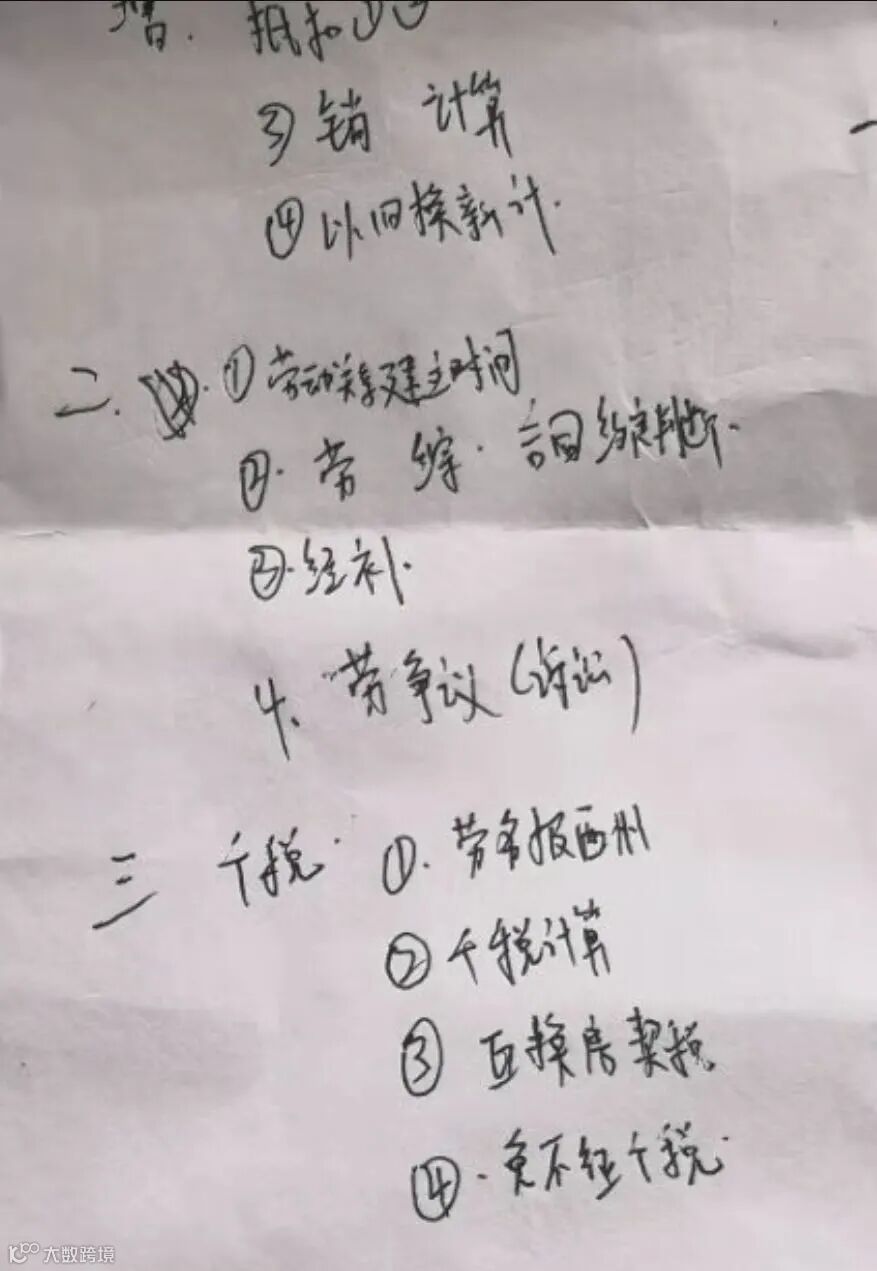 增. 抵扣①②
③ 销 计算
④ 以旧换新计.
二. ① 劳动关系建立时间
②. 劳 综. 合同约定判断.
③. 经补.
4、劳争议(诉讼)
三 个税. ①. 劳务报酬
② 个税计算
③ 互换房契税
④. 免不征个税.
大数跨境